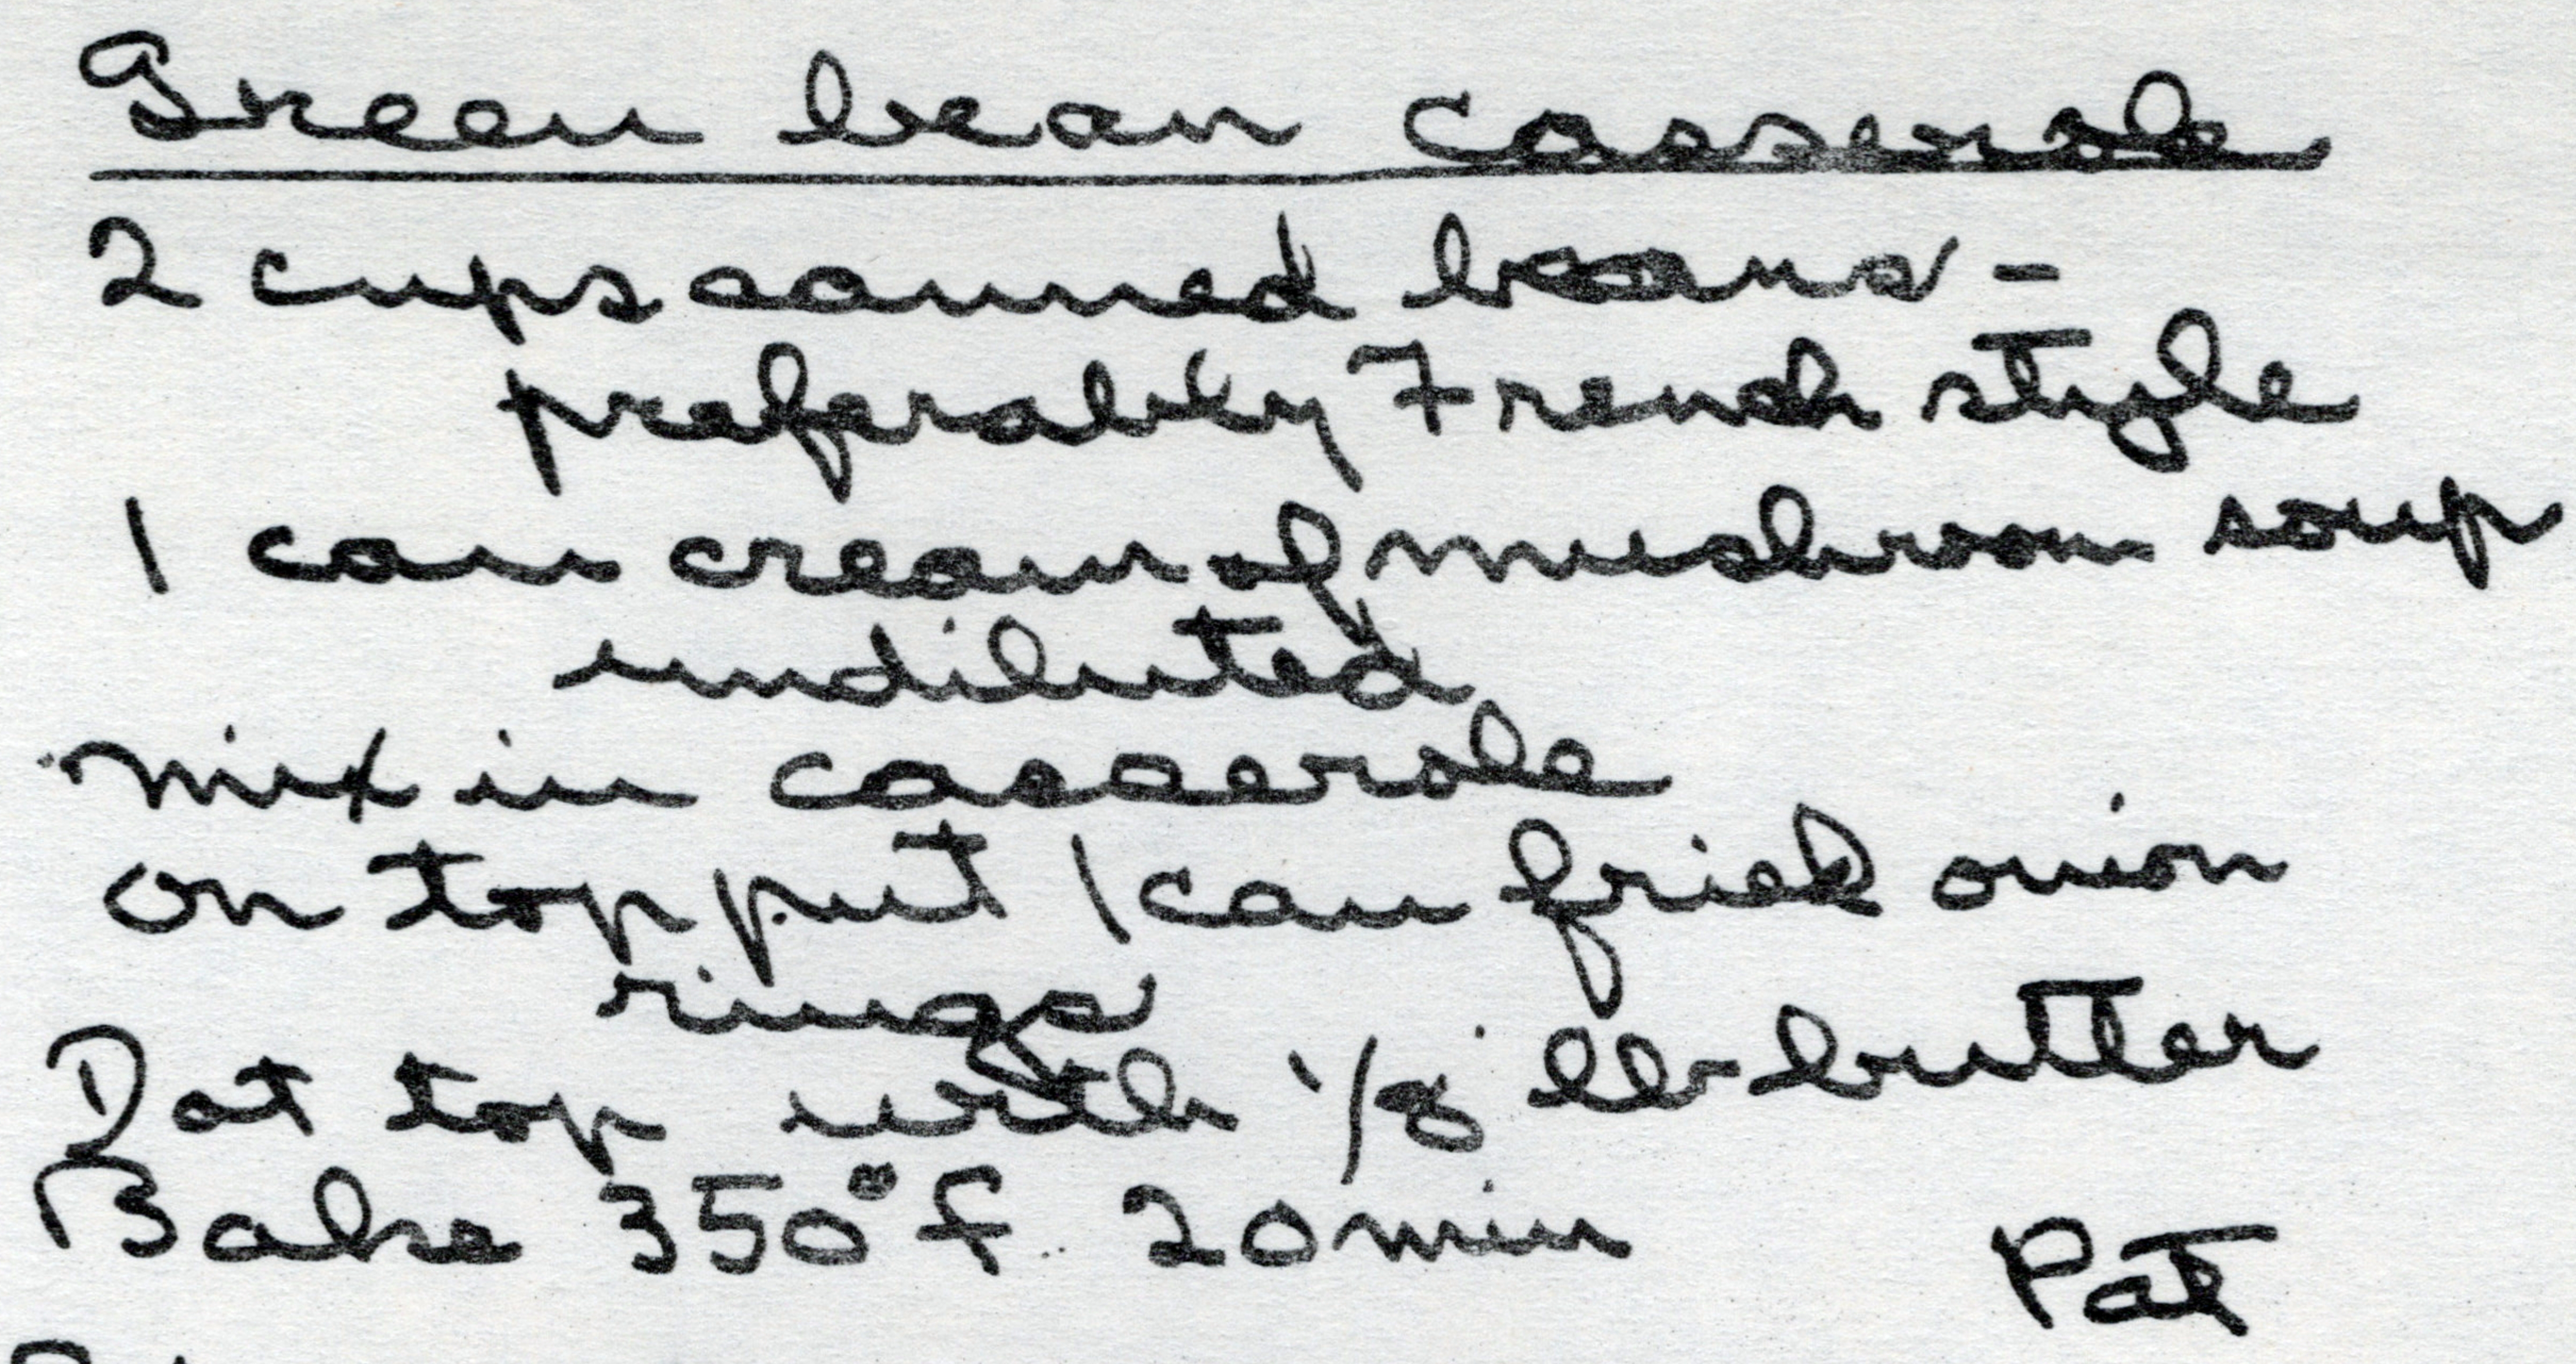 Green bean casserole
2 cups canned beans -
preferably French style
1 can cream of mushroom soup
undiluted
mix in casserole
on top put 1 can fried onion
rings
Dot top with 1/8 lb butter
Bake 350° f. 20 min
Pat